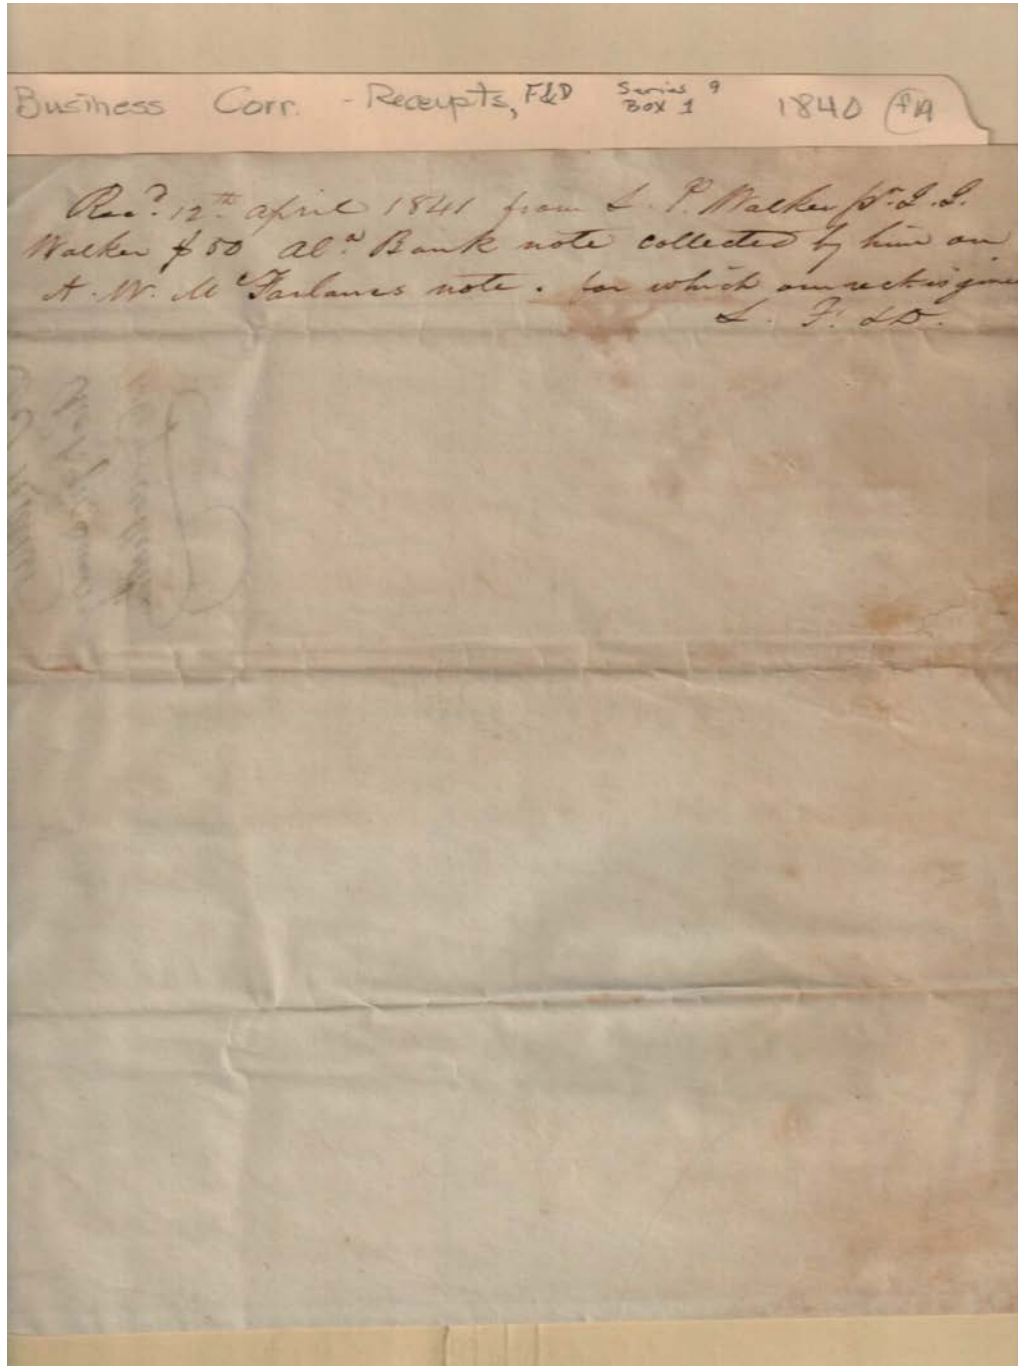 Business Corr. - Receipts, F&D Series 9 Box 1 1840 f19
Rec.d 12th April 1841 from L. P. Walker pr.
Walker $50 Al.a Bank note collected by him on
A. W. McFarlanes note. for which our rect is give
L. F. &D.